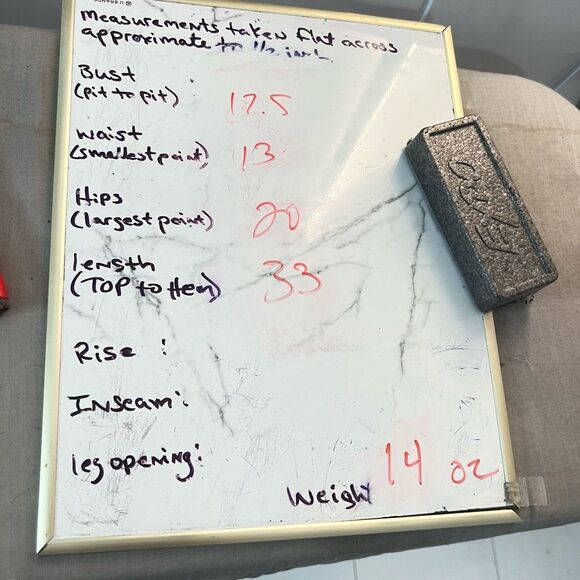 Measurements taken flat across
approximate to 1/2 inch.
Bust
(pit to pit)
17.5
waist
(smallest point)
13
Hips
(largest point)
20
length
(TOP to Hem)
33
Rise :
Inseam:
leg opening:
Weight
14 oz